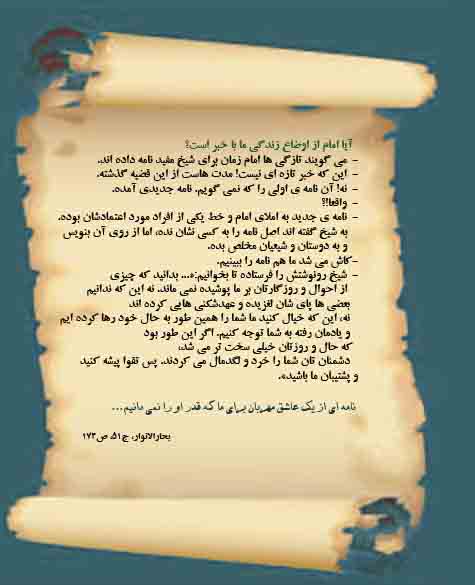 آیا امام از اوضاع زندگی ما با خبر است؟
- می گویند تازگی ها امام زمان برای شیخ مفید نامه داده اند.
- این که خبر تازه ای نیست! مدت هاست از این قضیه گذشته.
- نه! آن نامه ی اولی را که نمی گویم. نامه جدیدی آمده.
- واقعا!؟
- نامه ی جدید به املای امام و خط یکی از افراد مورد اعتمادشان بوده.
به شیخ گفته اند اصل نامه را به کسی نشان نده، اما از روی آن بنویس
و به دوستان و شیعیان مخلص بده.
-کاش می شد ما هم نامه را ببینیم.
- شیخ رونوشتش را فرستاده تا بخوانیم:«... بدانید که چیزی
از احوال و روزگارتان بر ما پوشیده نمی ماند. نه این که ندانیم
بعضی ها پای شان لغزیده و عهدشکنی هایی کرده اند
نه، این که خیال کنید ما شما را همین طور به حال خود رها کرده ایم
و یادمان رفته به شما توجه کنیم. اگر این طور بود
که حال و روزتان خیلی سخت تر می شد،
دشمنان تان شما را خرد و لگدمال می کردند. پس تقوا پیشه کنید
و پشتیبان ما باشید».
نامه ای از یک عاشق مهربان برای ما که قدر او را نمی دانیم...
بحارالانوار، ج۵۱، ص۱۷۳